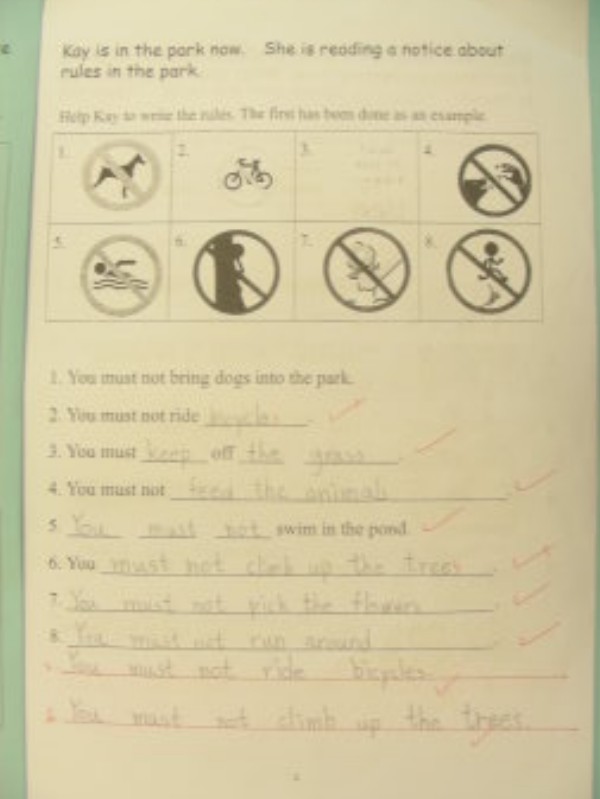 Kay is in the park now. She is reading a notice about
rules in the park.
Help Kay to write the rules. The first has been done as an example.
1. 2. 3. 4.
5. 6. 7. 8.
1. You must not bring dogs into the park.
2. You must not ride bicycles.
3. You must keep off the grass.
4. You must not feed the animals.
5. You must not swim in the pond.
6. You must not climb up the trees.
7. You must not pick the flowers.
8. You must not run around.
You must not ride bicycles.
You must not climb up the trees.